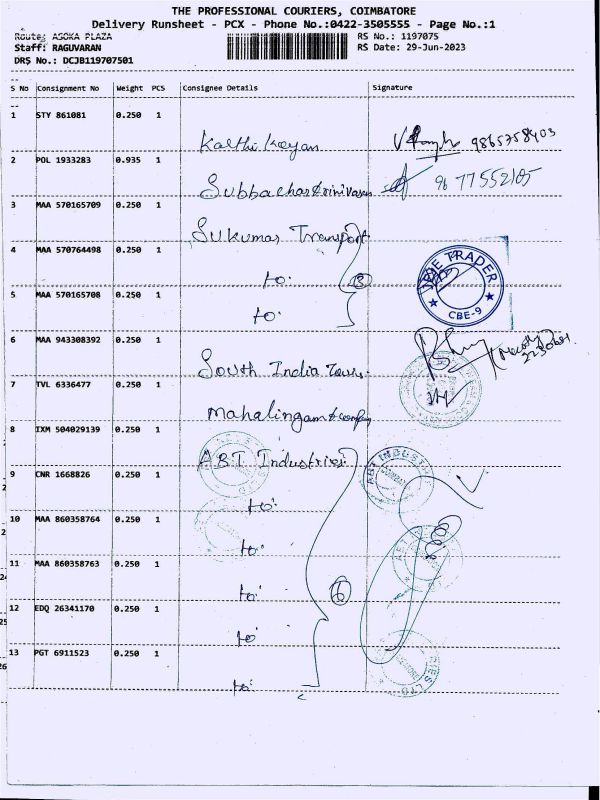 THE PROFESSIONAL COURIERS, COIMBATORE
Delivery Runsheet - PCX - Phone No.:0422-3505555 - Page No.:1
Route: ASOKA PLAZA
Staff: RAGUVARAN
DRS No.: DCJB119707501
RS No.: 1197075
RS Date: 29-Jun-2023
S No Consignment No Weight PCS Consignee Details Signature
1 STY 861081 0.250 1
9865758403
2 POL 1933283 0.935 1
96 77552105
3 MAA 570165709 0.250 1
Sukumar Transport
4 MAA 570764498 0.250 1
to. 3
THE TRADER
CBE-9
5 MAA 570165708 0.250 1
to.
6 MAA 943308392 0.250 1
South India Tours.
7 TVL 6336477 0.250 1
Mahalingam &
8 IXM 504029139 0.250 1
ABI Industries
9 CNR 1668826 0.250 1
to.
10 MAA 860358764 0.250 1
to.
11 MAA 860358763 0.250 1
to. 6
12 EDQ 26341170 0.250 1
to.
13 PGT 6911523 0.250 1
to.